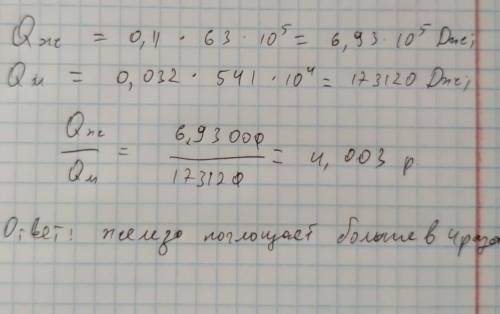 Qж = 0,11 · 63 · 10⁵ = 6,93 · 10⁵ Дж;
Qм = 0,032 · 541 · 10⁴ = 173120 Дж;
Qж/Qм = 6,93000/173120 = 4,003 р
Ответ: железо поглощает больше в 4 раза